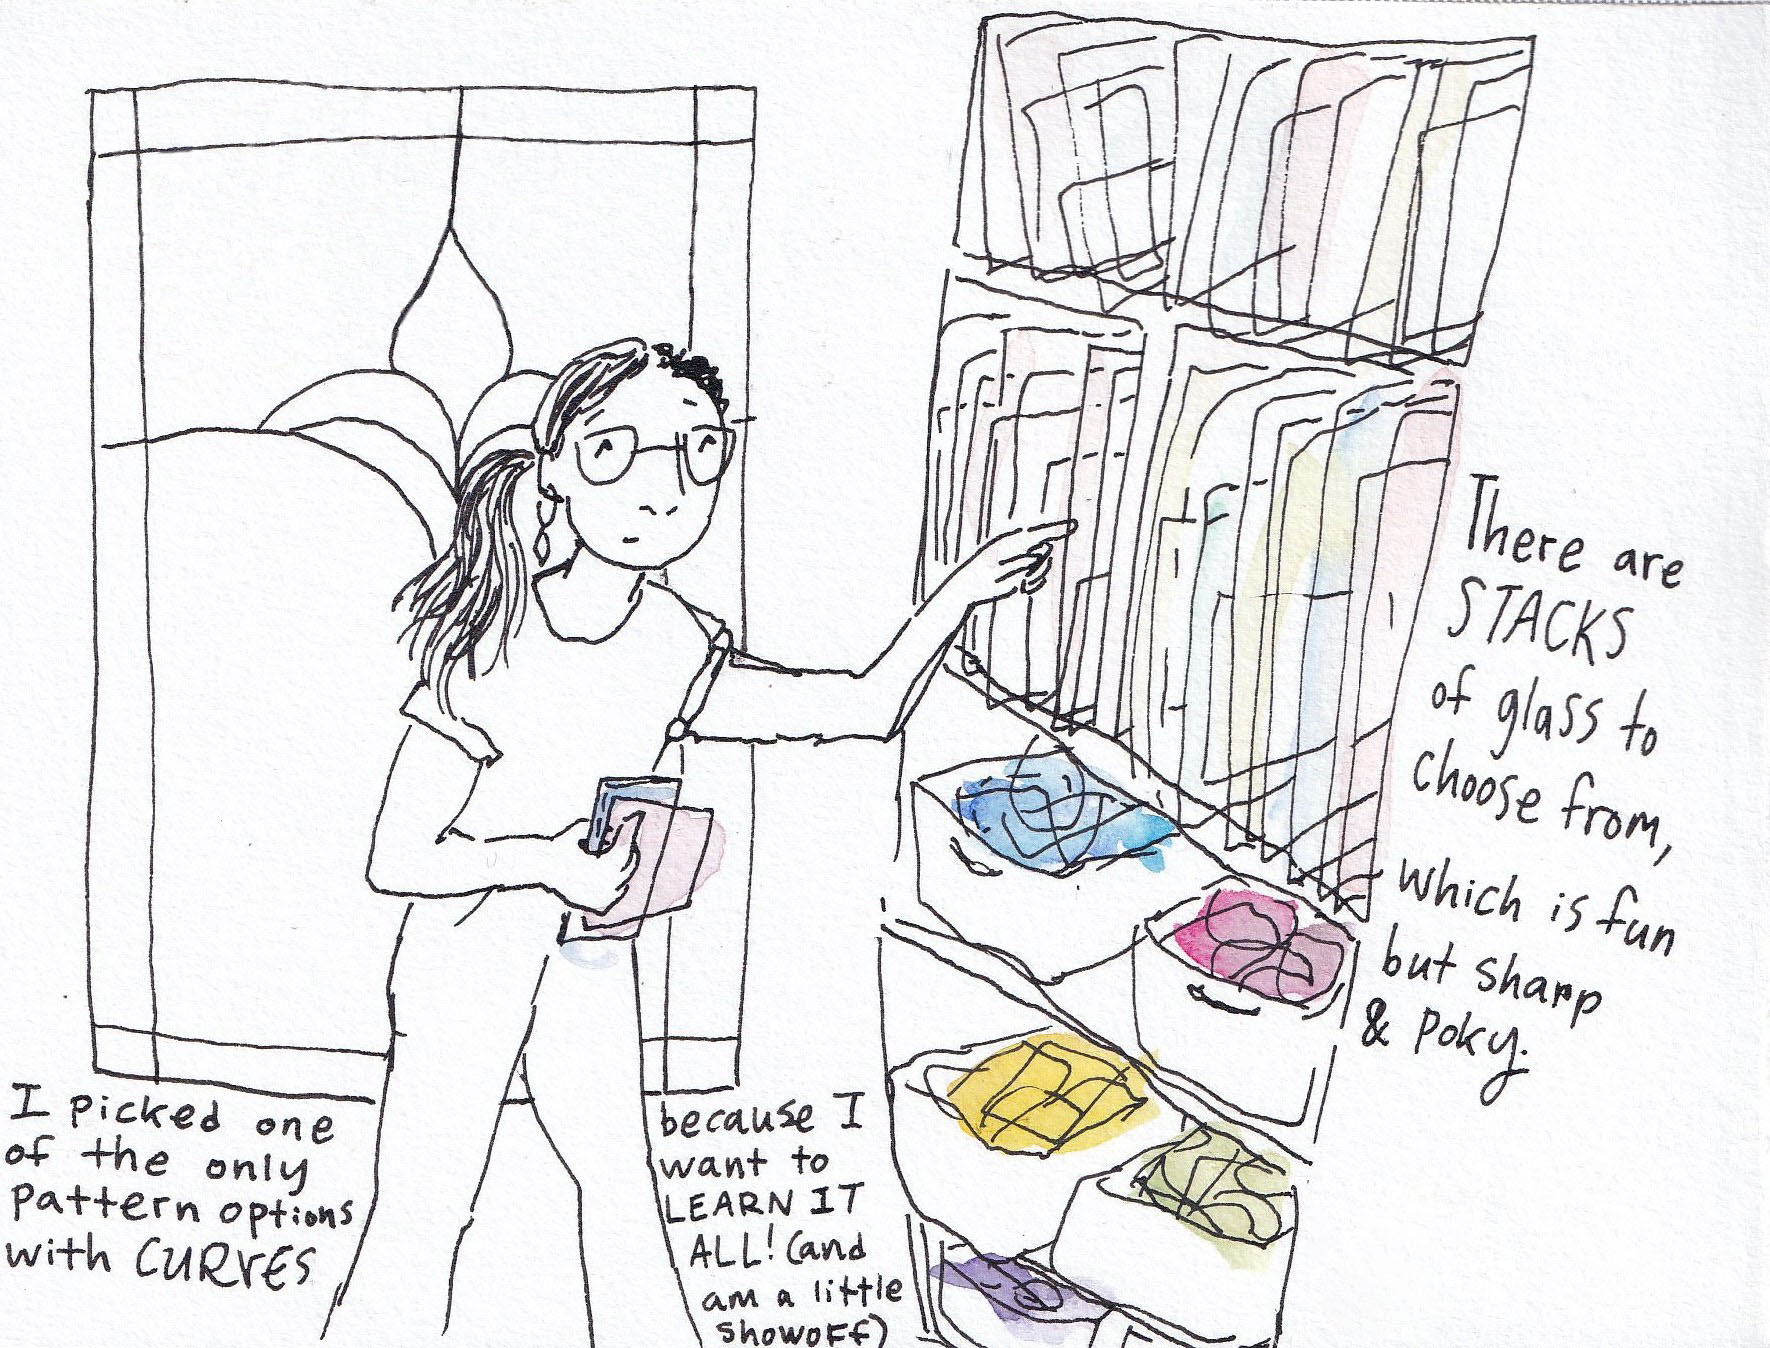 I picked one
of the only
pattern options
with CURVES
because I
want to
LEARN IT
ALL! (and
am a little
showoff)
There are
STACKS
of glass to
choose from,
which is fun
but sharp
& poky.